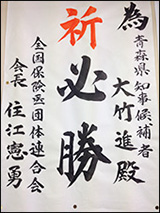 為
青森県知事候補者
大竹進殿
祈
必勝
全国保険医団体連合会
会長 住江憲勇